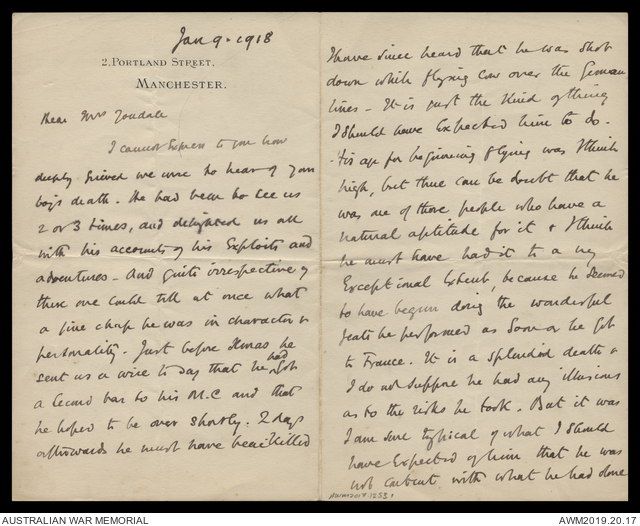 Jan 9. 1918
2, PORTLAND STREET,
MANCHESTER.
Dear Mrs Youdale
I cannot express to you how
deeply grieved we were to hear of your
boys death. He had been to see us
2 or 3 times, and delighted us all
with his accounts of his exploits and
adventures - And quite irrespective of
these one could tell at once what
a fine chap he was in character &
personality. Just before Xmas he
sent us a wire to say that he had got
a second bar to his M.C and that
he hoped to be over shortly. 2 days
afterwards he must have been killed
I have since heard that he was shot
down while flying low over the German
lines - It is just the kind of thing
I should have expected him to do.
His age for beginning flying was I think
high, but there can be doubt that he
was one of those people who have a
natural aptitude for it & I think
he must have had it to a very
exceptional extent, because he seemed
to have begun doing the wonderful
feats he performed as soon as he got
to France. It is a splendid death &
I do not suppose he had any illusions
as to the risks he took. But it was
I am sure typical of what I should
have expected of him that he was
not content with what he had done
AUSTRALIAN WAR MEMORIAL
AWM2019.20.17